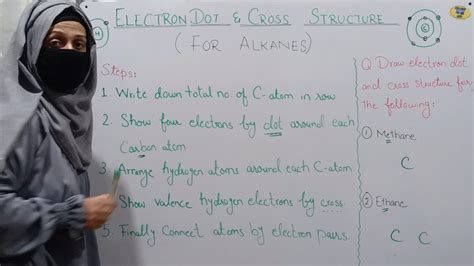 ELECTRON DOT & CROSS STRUCTURE
(FOR ALKANES)
H
C
Steps:
1. Write down total no. of C-atom in row
2. Show four electrons by dot around each
Carbon atom
3. Arrange hydrogen atoms around each C-atom
Show valence hydrogen electrons by cross
5. Finally Connect atoms by electron pairs
Q. Draw electron dot
and cross structure for
the following:
① Methane
C
② Ethane
C C